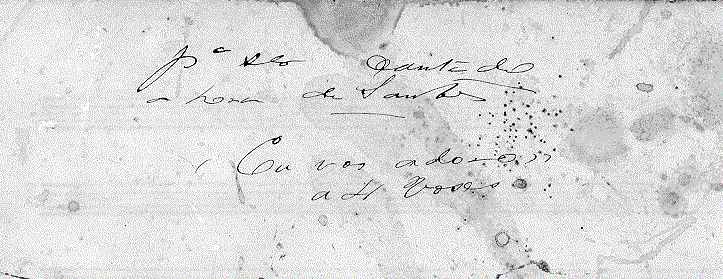 pª ser cantado
a hora de Santos
"Eu vos adoro"
a 4 Vozes